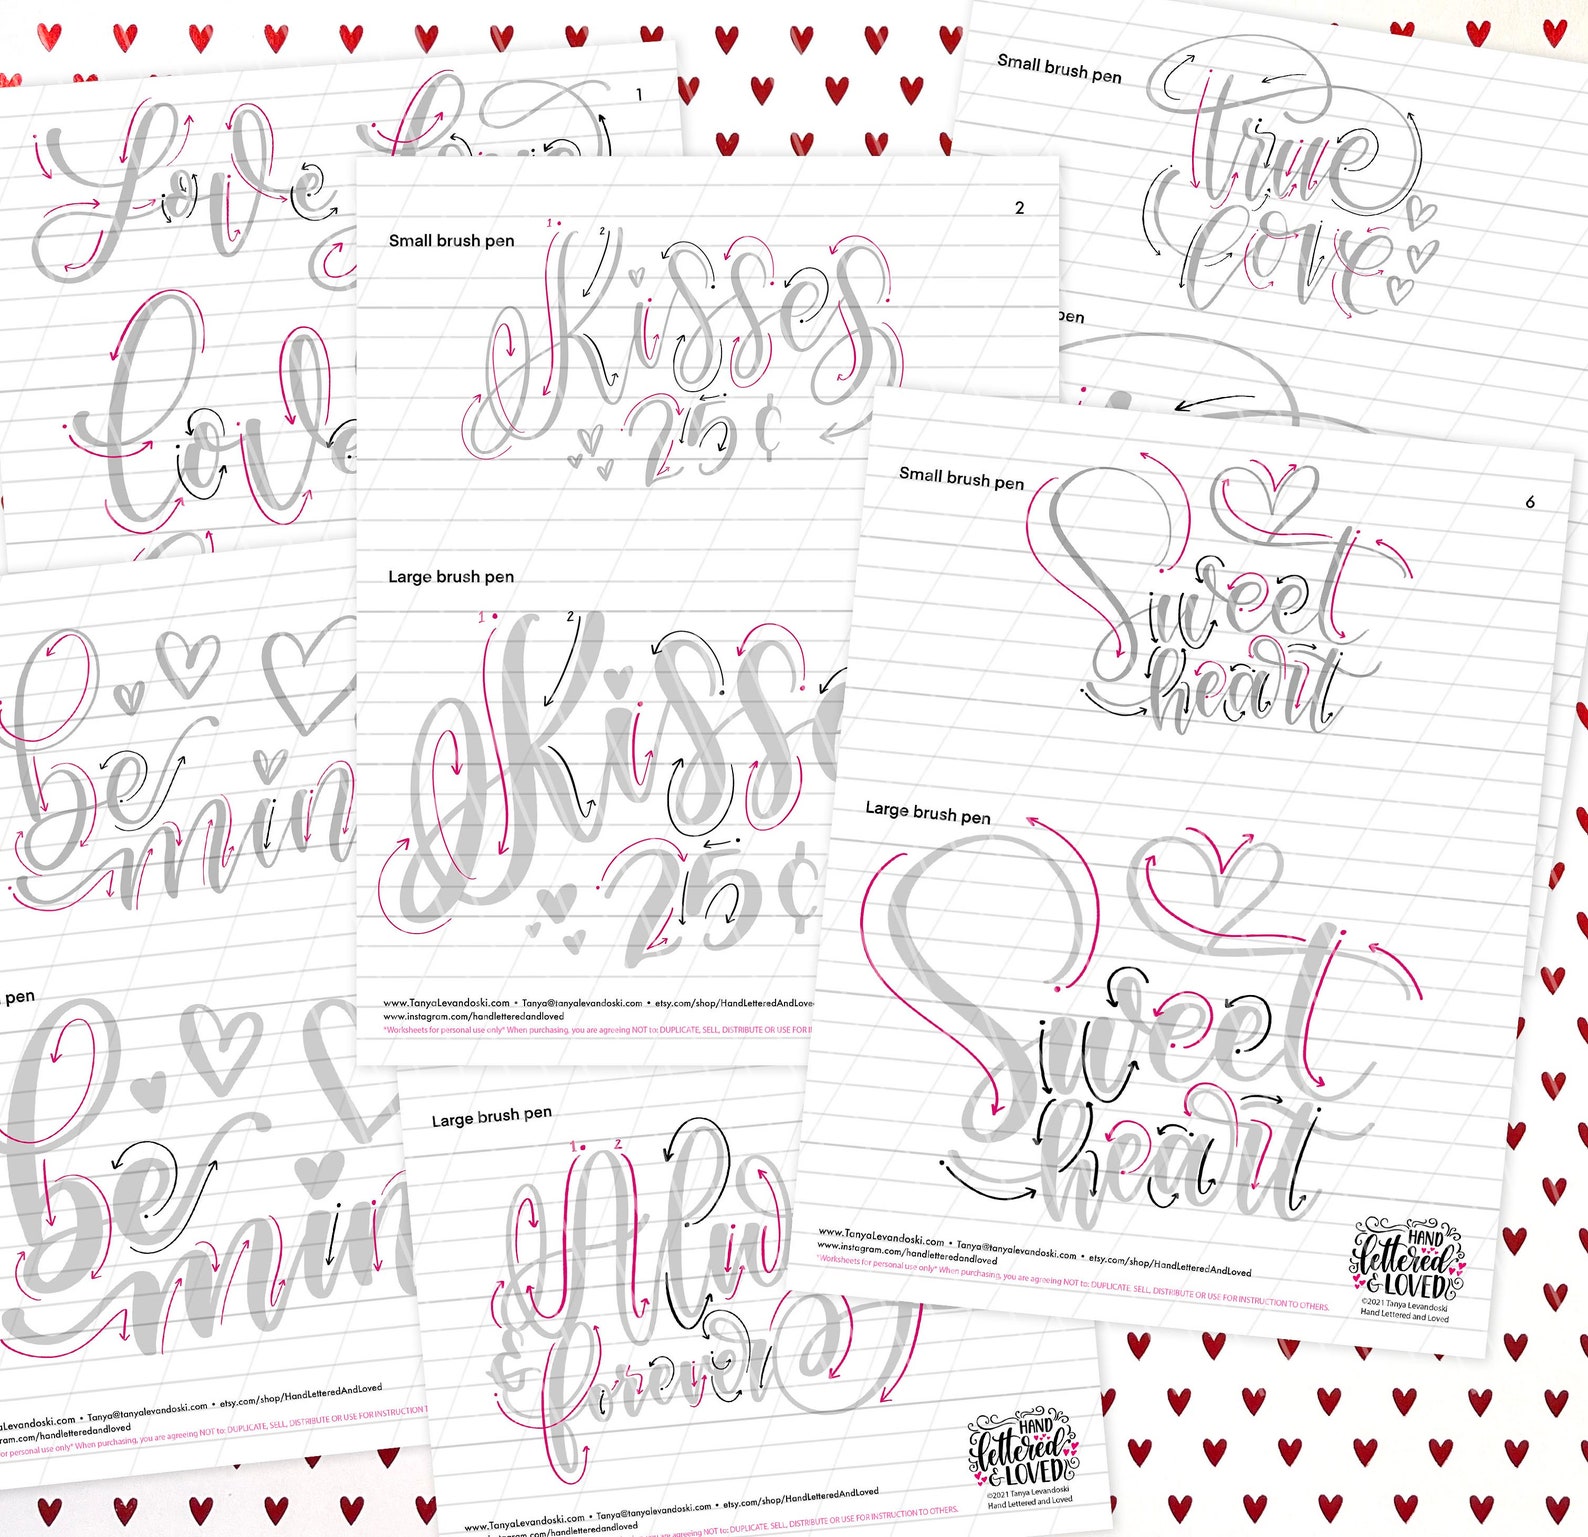 1
Love Love
love
Small brush pen
true
love
pen
2
Small brush pen
1 2
Kisses
25¢
Large brush pen
1 2
Kisse
25¢
www.TanyaLevandoski.com • Tanya@tanyalevandoski.com • etsy.com/shop/HandLetteredAndLove
www.instagram.com/handletteredandloved
*Worksheets for personal use only* When purchasing, you are agreeing NOT to: DUPLICATE, SELL, DISTRIBUTE OR USE FOR
6
Small brush pen
Sweet
heart
Large brush pen
Sweet
heart
www.TanyaLevandoski.com • Tanya@tanyalevandoski.com • etsy.com/shop/HandLetteredAndLoved
www.instagram.com/handletteredandloved
*Worksheets for personal use only* When purchasing, you are agreeing NOT to: DUPLICATE, SELL, DISTRIBUTE OR USE FOR INSTRUCTION TO OTHERS.
HAND
lettered
& LOVED
©2021 Tanya Levandoski
Hand Lettered and Loved
be
min
pen
be
min
aLevandoski.com • Tanya@tanyalevandoski.com • etsy.com/shop/HandLetteredAndLoved
ram.com/handletteredandloved
or personal use only* When purchasing, you are agreeing NOT to: DUPLICATE, SELL, DISTRIBUTE OR USE FOR INSTRUCTION
Large brush pen
1 2
Alw
& forever
www.TanyaLevandoski.com • Tanya@tanyalevandoski.com • etsy.com/shop/HandLetteredAndLoved
instagram.com/handletteredandloved
you are agreeing NOT to: DUPLICATE, SELL, DISTRIBUTE OR USE FOR INSTRUCTION TO OTHERS.
HAND
lettered
& LOVED
©2021 Tanya Levandoski
Hand Lettered and Loved